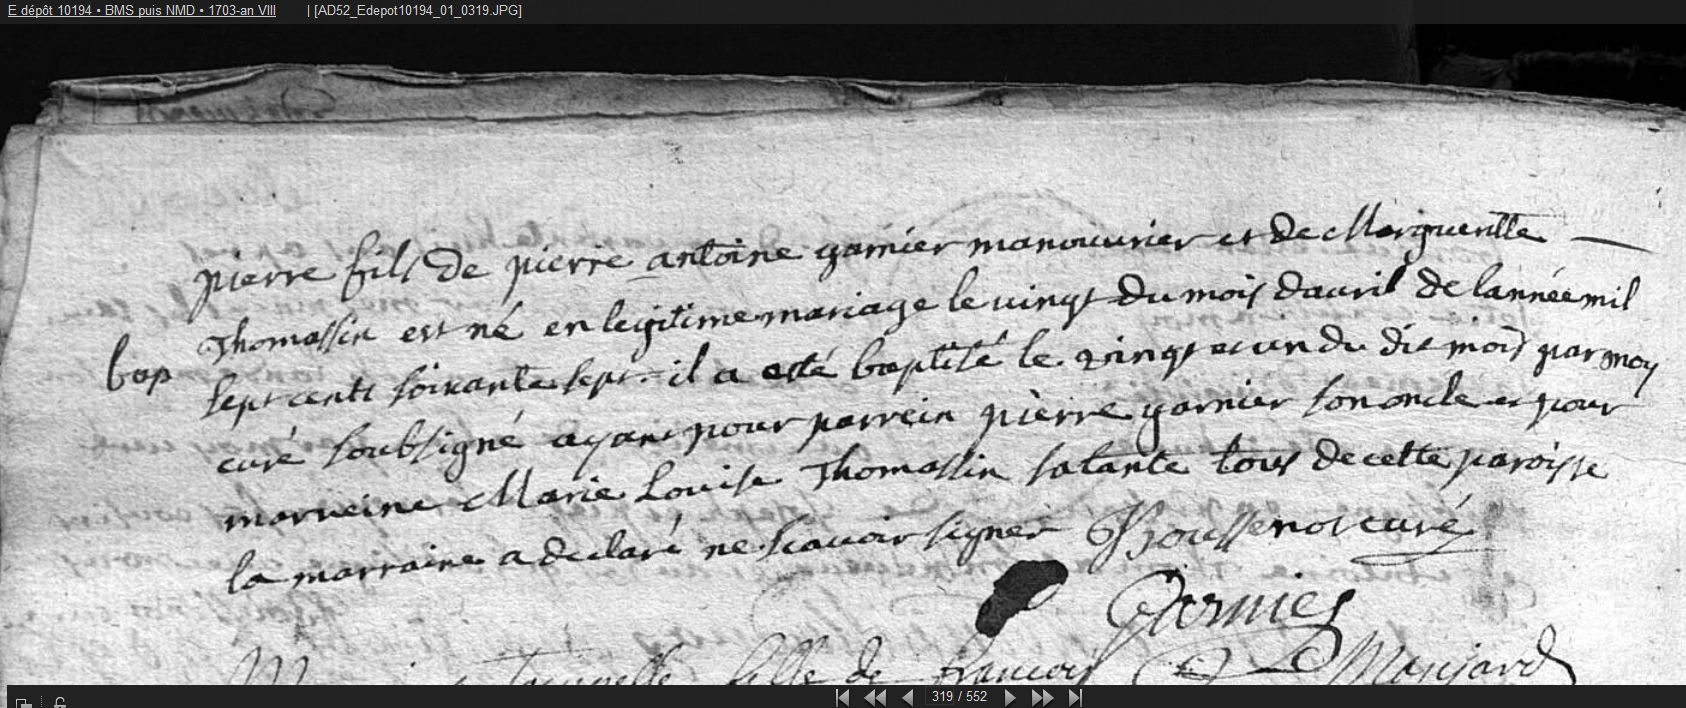 E dépôt 10194 • BMS puis NMD • 1703-an VIII | [AD52_Edepot10194_01_0319.JPG]
pierre fils de pierre antoine garnier manouvrier et de Margueritte
Thomassin est né en legitime mariage le vingt du mois d'avril de lannée mil
bap
sept cents soixante sept il a esté baptisé le vingt et un du dit mois par moy
curé soubsigné ayant pour parrein pierre garnier son oncle et pour
marreine Marie Louise Thomassin sa tante tous de cette paroisse
la marraine a declaré ne scavoir signer Roussenot curé
Garnier
fille de francois Monjard
319 / 552